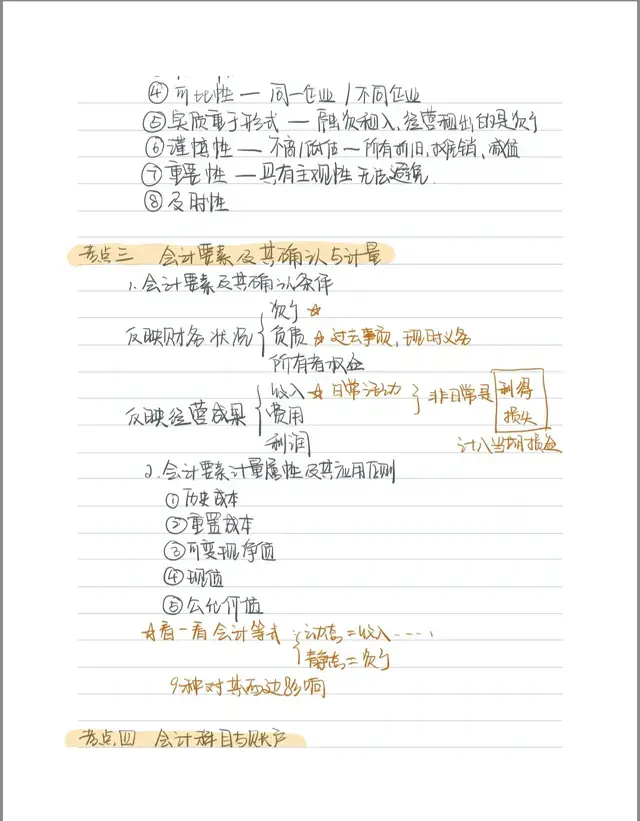 ④ 可比性 — 同一企业 / 不同企业
⑤ 实质重于形式 — 融资租入、经营租出的是资产
⑥ 谨慎性 — 不高/低估 — 所有折旧、摊销、减值
⑦ 重要性 — 具有主观性 无法避免.
⑧ 及时性
考点三 会计要素及其确认与计量
1. 会计要素及其确认条件
反映财务状况 { 资产 ☆
负债 ☆ 过去事项, 现时义务
所有者权益
反映经营成果 { 收入 ☆ 日常活动 } 非日常是 利得
费用 损失
利润 计入当期损益
2. 会计要素计量属性及其应用原则
① 历史成本
② 重置成本
③ 可变现净值
④ 现值
⑤ 公允价值
☆看一看 会计等式 { 动态 = 收入 ……
静态 = 资产
9种对其两边影响
考点四 会计科目与账户